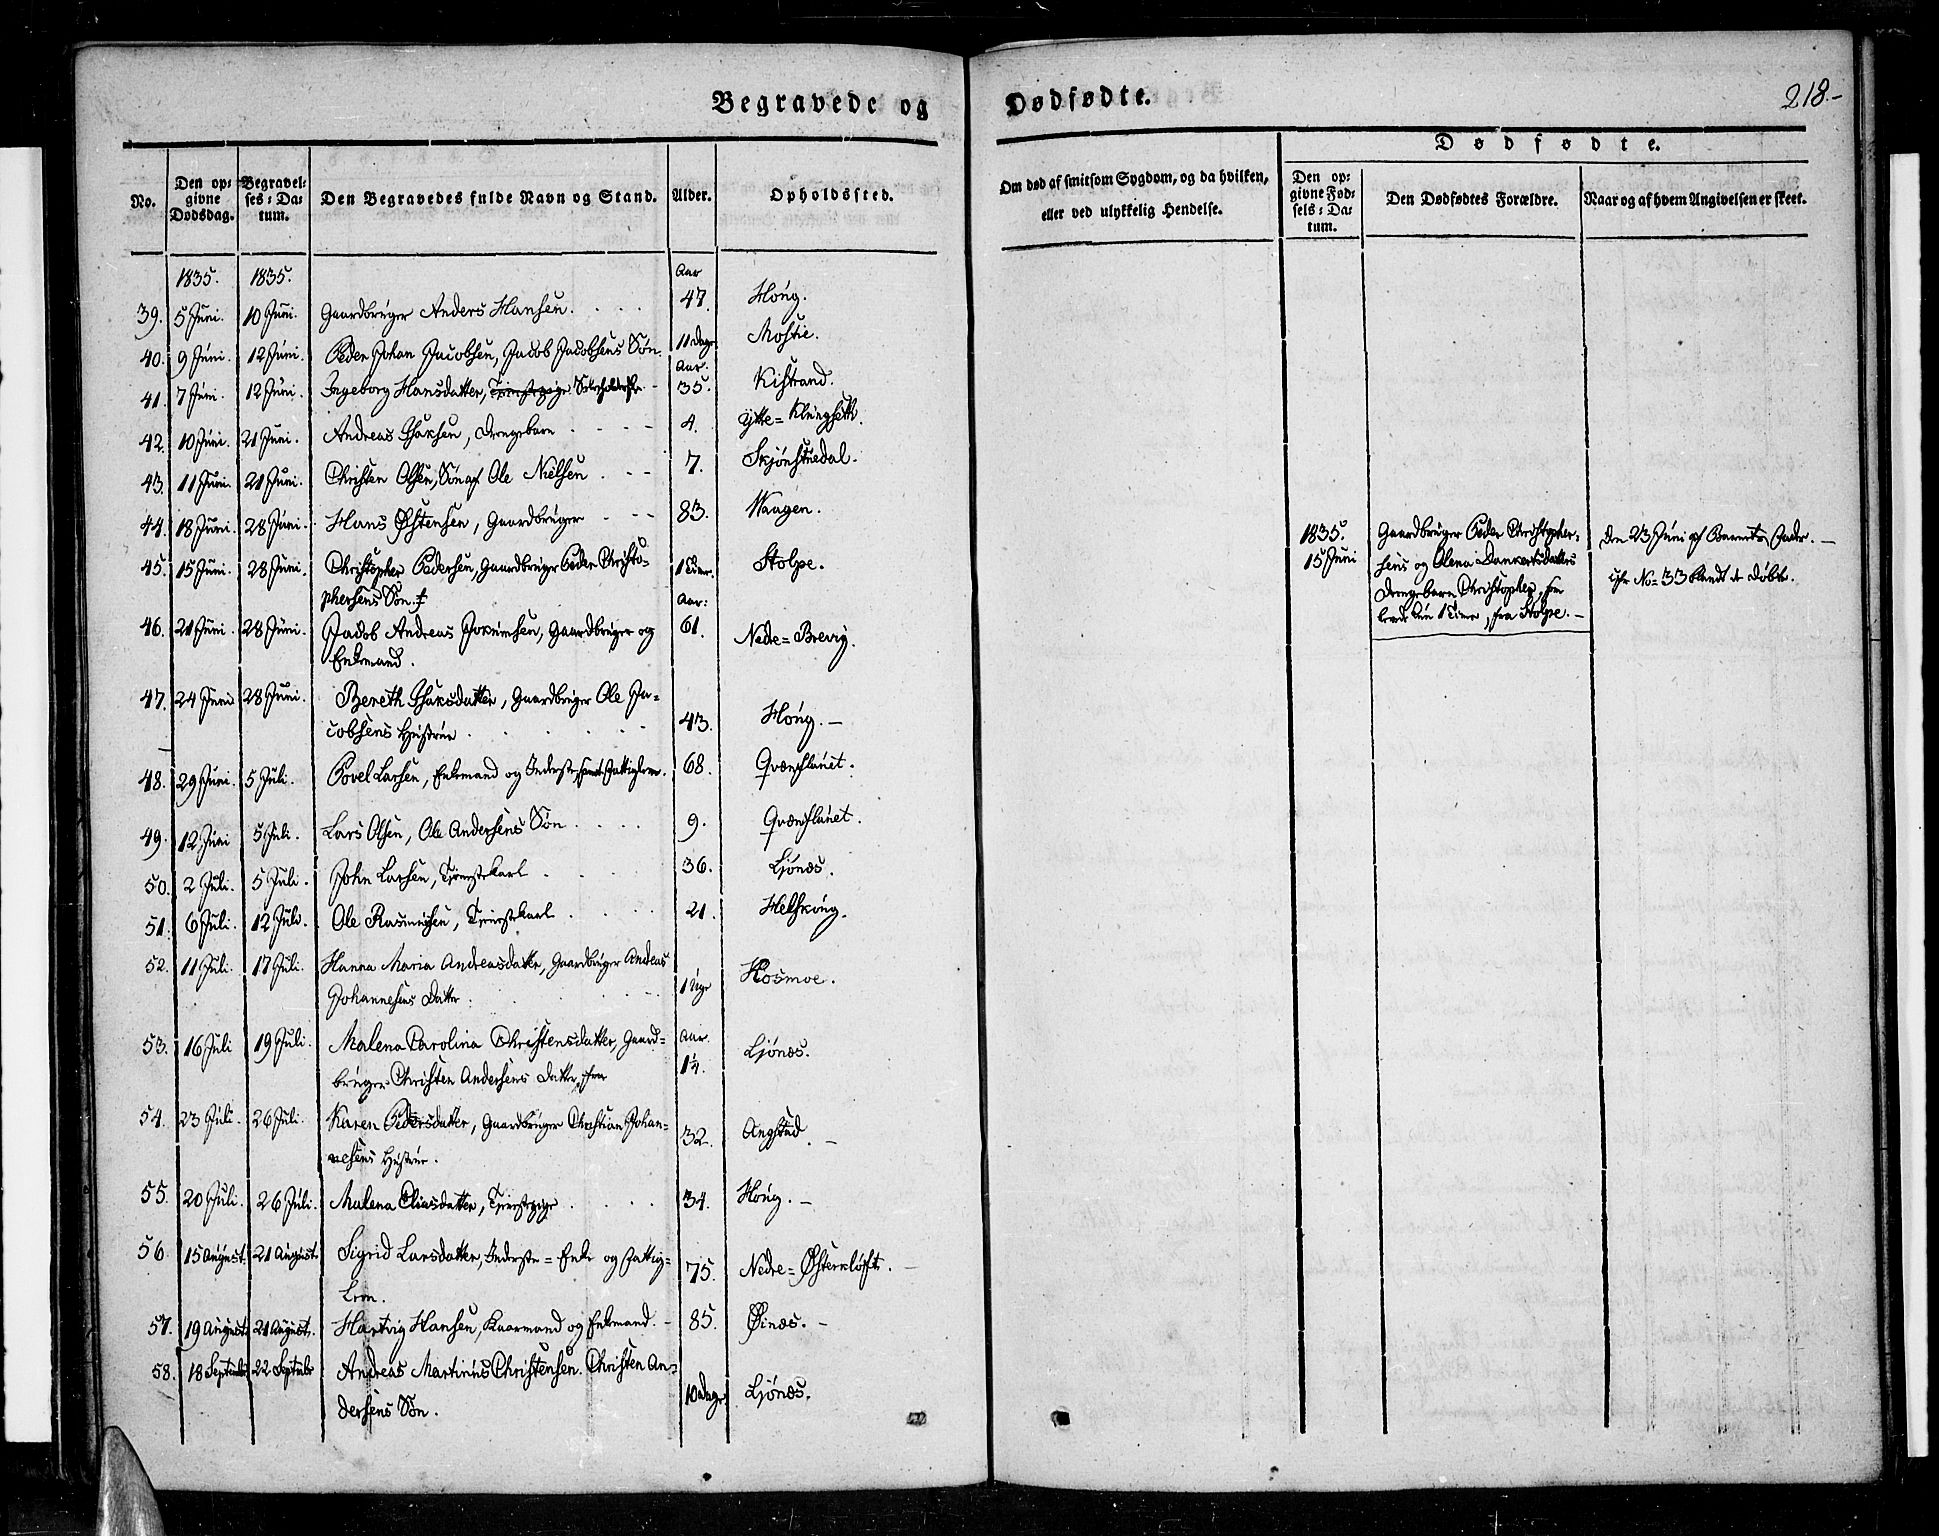 Begravede og Dødfødte.
218.-
No.
Den op-
givne
Dødsdag.
Begravel-
ses-Da-
tum.
Den Begravedes fulde Navn og Stand.
Alder.
Opholdssted.
Om død af smitsom Sygdom, og da hvilken,
eller ved ulykkelig Hendelse.
Dødfødte.
Den op-
givne Fød-
sels-Da-
tum.
Den Dødfødtes Forældre.
Naar og af hvem Angivelsen er skeet.
1835. 1835. Aar
39. 5 Juni. 10 Juni. Gaardbruger Anders Hansen. 47. Hong.
40. 9 Juni. 12 Juni. Peder Johan Jacobsen, Jacob Jacobsens Søn. 11 Dage Mostie.
Aar.
41. 7 Juni. 12 Juni. Ingeborg Hansdatter, 35. Kistrand.
42. 10 Juni. 21 Juni. Andreas Isaksen, Drengebarn 4. Ytte=Klungseth.
43. 11 Juni. 21 Juni. Christen Olsen, Søn af Ole Nielsen. 7. Skjønstuedal.
44. 18 Juni. 28 Juni. Hans Østensen, Gaardbruger 83. Waagen.
45. 15 Juni. 28 Juni. Christopher Pedersen, Gaardbruger Peder Christo- 1 Time. Stolpe.
phersens Søn. Aar:
46. 21 Juni. 28 Juni. Jacob Andreas Jokumsen, Gaardbruger og 61. Nedre=Brevig.
Enkemand.
47. 24 Juni 28 Juni. Bereth Isaksdatter, Gaardbruger Ole Ja-
cobsens Hustrue. 43. Hong. -
48. 29 Juni. 5 Juli. Povel Larsen, Enkemand og Inderste, samt Fattiglem. 68. Qvænflaaet.
49. 12 Juni 5 Juli. Lars Olsen, Ole Andersens Søn 9. Qvænflaaet.
50. 2 Juli. 5 Juli. John Larsen, Tjenestekarl 36. Ljønæs.
51. 6 Juli. 12 Juli. Ole Rasmussen, Tjenestekarl 21. Helskong.
52. 11 Juli. 17 Juli. Hanna Maria Andreasdatter, Gaardbruger Andreas
Johannesens Datter. 1 Uge Kosmoe.
53. 16 Juli 19 Juli. Malena Carolina Christensdatter, Gaard- Aar.
bruger Christen Andersens Datter, 1¼. Ljønæs.
54. 23 Juli. 26 Juli. Karen Pedersdatter, Gaardbruger Christian Johan-
nesens Hustrue. 32. Angstad. -
55. 20 Juli. 26 Juli. Malena Eliasdatter, Tjenestepige 34. Hong. -
56. 15 August. 21 August Sigrid Larsdatter, Inderste=Enke og Fattig-
Lem. 75. Nedre=Østerkløft. -
57. 19 August 21 August. Hartvig Hansen, Kaarmand og Enkemand. 85. Øinæs. -
58. 18 September 22 September Andreas Martinus Christensen. Christen An-
dersens Søn. 10 dage. Ljønæs.
1835.
15 Juni
Gaardbruger Peder Christopher-
sens og Olena Dankertsdatters
Drengebarn Christopher, som
levede kun 1 Time, fra Stolpe. -
Den 23 Juni af Barnets Fader. -
cfr No= 33 blandt de Døbte.